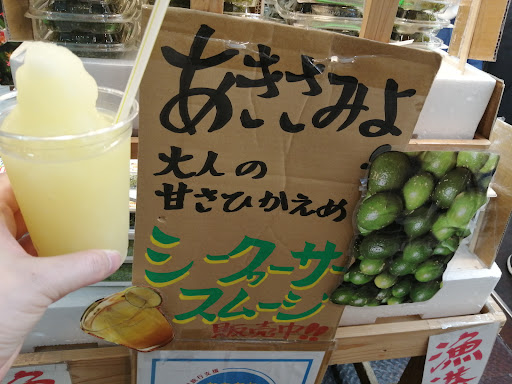 あきさみよー
大人の
甘さひかえめ
シークヮーサー
スムージー
販売中!!
漁